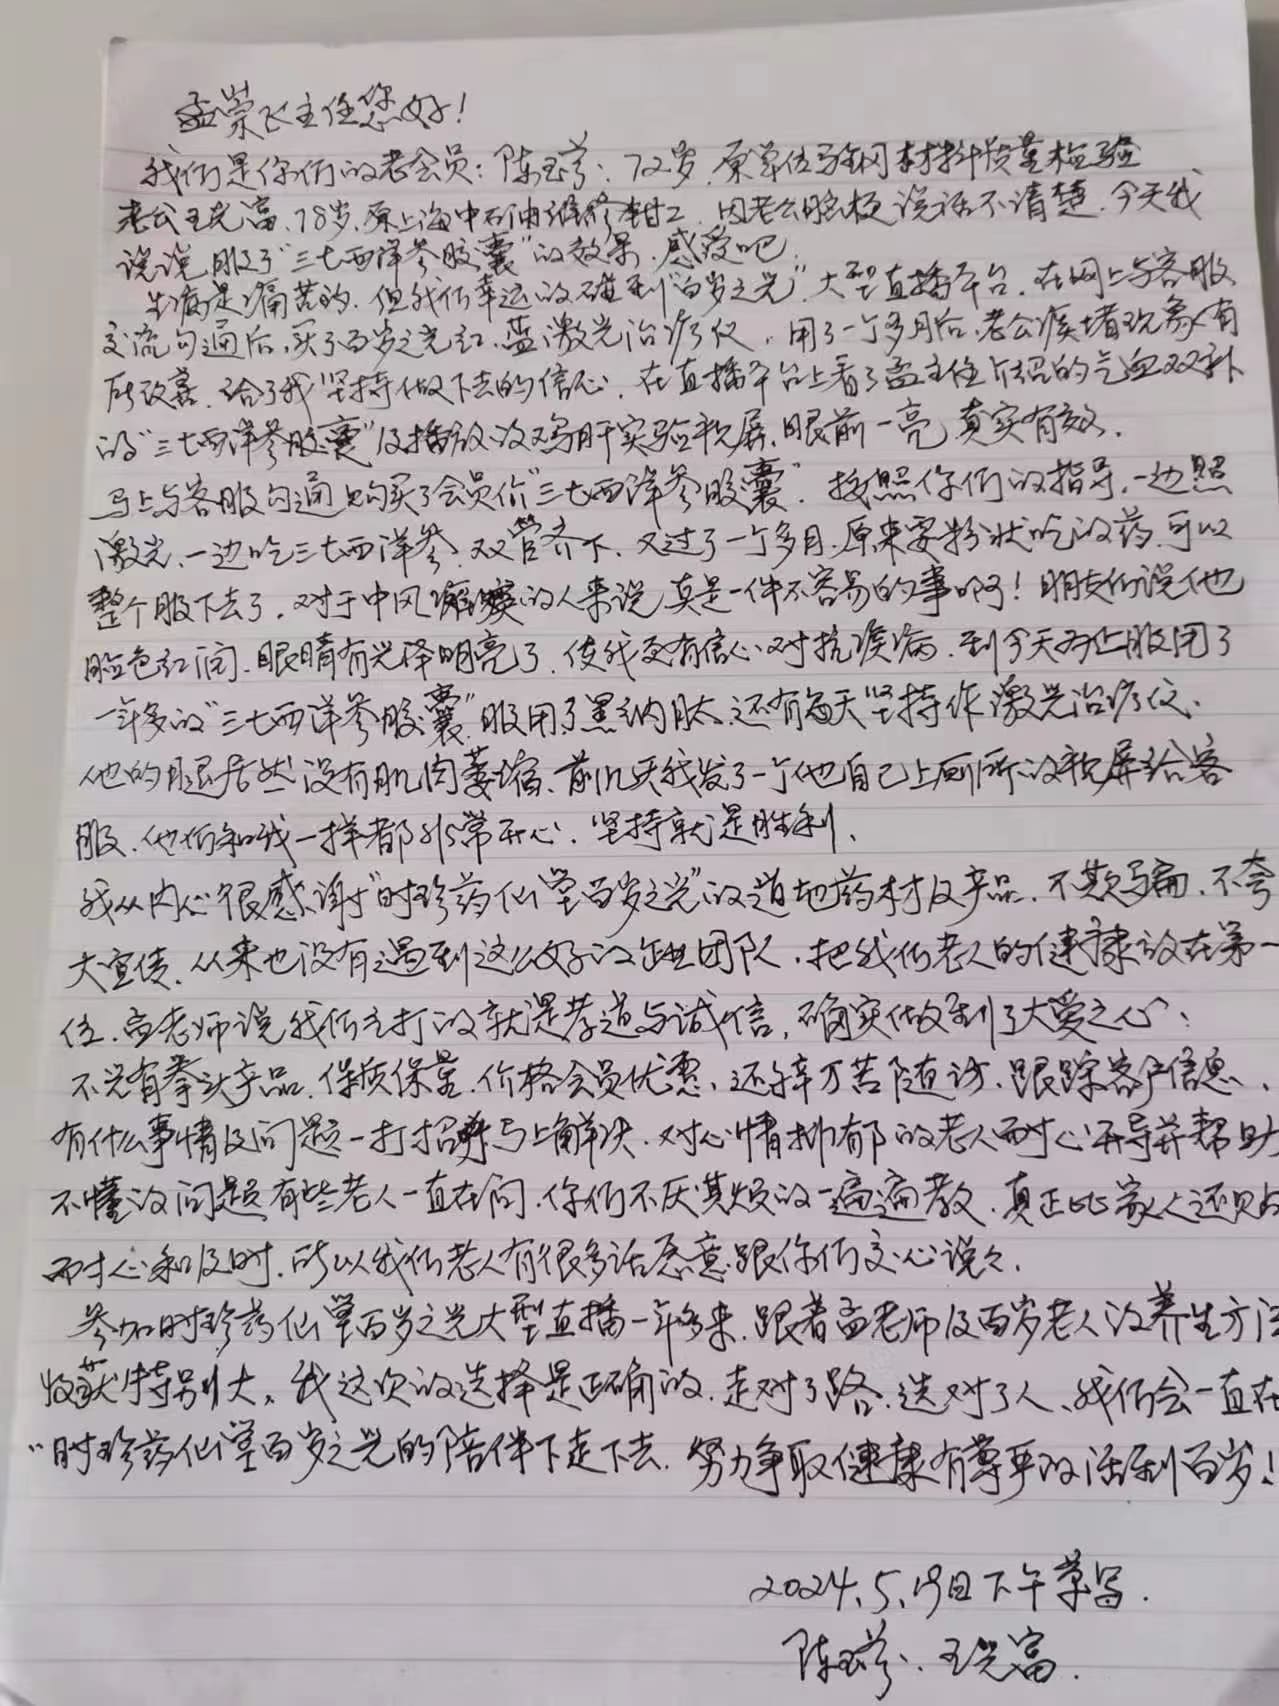 孟荣飞主任您好！
我们是你们的老会员：陈玉芬、72岁，原单位 钢材料质量检验
老公王光富、78岁，原上海中石油维修钳工，因老公脑梗说话不清楚，今天我
说说服了“三七西洋参胶囊”的效果，感受吧，
生病是痛苦的，但我们幸运的碰到“百岁之光”大型直播平台，在网上与客服
交流勾通后，买了百岁之光红、蓝激光治疗仪，用了一个多月后，老公痰堵现象有
所改善，给了我坚持做下去的信心，在直播平台上看了孟主任介绍的气血双补
的“三七西洋参胶囊”及播放的鸡肝实验视屏，眼前一亮，真实有效，
马上与客服勾通购买了会员价“三七西洋参胶囊”，按照你们的指导，一边照
激光，一边吃三七西洋参，双管齐下，又过了一个多月，原来要粉状吃的药，可以
整个服下去了，对于中风瘫痪的人来说真是一件不容易的事啊！朋友们说他
脸色红润，眼睛有光泽明亮了，使我更有信心对抗疾病，到今天为止服用了
一年多的“三七西洋参胶囊”，服用了黑纳肽，还有每天坚持作激光治疗仪、
他的腿居然没有肌肉萎缩、前几天我发了一个他自己上厕所的视屏给客
服，他们和我一样都非常开心，坚持就是胜利、
我从内心很感谢“时珍药仙堂百岁之光”的道地药材及产品，不欺骗，不夸
大宣传，从来也没有遇到这么好的企业团队，把我们老人的健康放在第一
位，孟老师说我们主打的就是孝道与诚信，确实做到了大爱之心：
不光有拳头产品，保质保量，价格会员优惠，还辛万苦随访，跟踪客户信息、
有什么事情及问题一打招呼马上解决，对心情抑郁的老人耐心开导并帮助
不懂的问题有些老人一直在问，你们不厌其烦的一遍遍教，真正比家人还贴
耐心和及时，所以我们老人有很多话愿意跟你们交心说说，
参加时珍药仙堂百岁之光大型直播一年多来，跟着孟老师及百岁老人的养生方法
收获特别大，我这次的选择是正确的，走对了路，选对了人、我们会一直在
“时珍药仙堂百岁之光的陪伴下走下去，努力争取健康有尊严的活到百岁！
2024.5.19日下午草写．
陈玉芬、王光富．